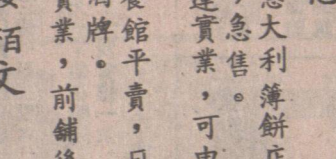 意大利薄餅店
，急售。
連實業，可申
餐館平賣，
酒牌。
實業，前鋪後
佰文